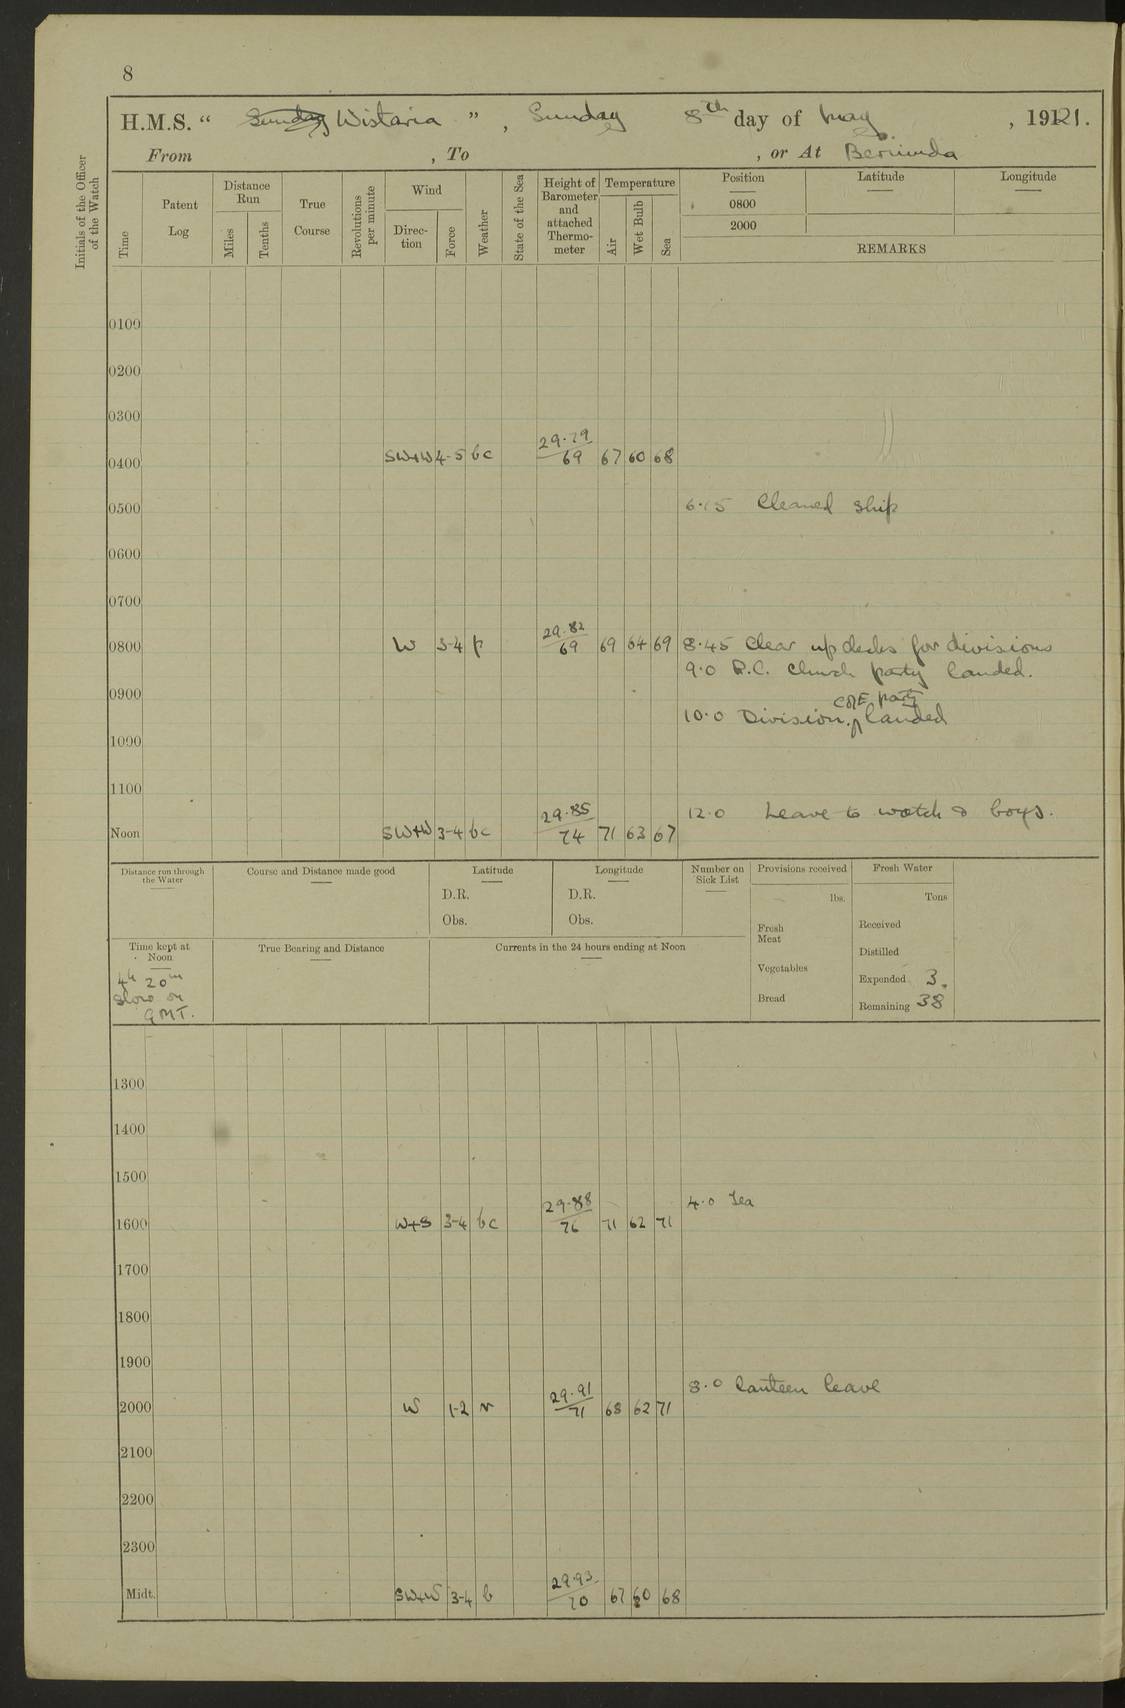 8
H.M.S. “ Sunday Wistaria ” , Sunday 8th day of May , 1921.
From , To , or At Bermuda
Initials of the Officer of the Watch
Time
Patent Log
Distance Run
Miles
Tenths
True Course
Revolutions per minute
Wind
Direc-tion
Force
Weather
State of the Sea
Height of Barometer and attached Thermo-meter
Temperature
Air
Wet Bulb
Sea
Position
Latitude
Longitude
0800
2000
REMARKS
0100
0200
0300
0400 SW+W 4-5 bc 29.79/69 67 60 68
0500 6.15 Cleaned ship
0600
0700
0800 W 3-4 p 29.82/69 69 64 69 8.45 Clear up decks for divisions
9.0 R.C. Church party landed.
0900
C of E party
10.0 Division. ^ landed
1000
1100
12.0 Leave to watch & boys.
Noon SW+W 3-4 bc 29.85/74 71 63 67
Distance run through the Water
Course and Distance made good
Latitude
D.R.
Obs.
Longitude
D.R.
Obs.
Number on Sick List
Provisions received
lbs.
Fresh Meat
Vegetables
Bread
Fresh Water
Tons
Received
Distilled
Expended 3.
Remaining 38
Time kept at Noon
4h 20m
Slow on
GMT.
True Bearing and Distance
Currents in the 24 hours ending at Noon
1300
1400
1500
4.0 Tea
1600 W+S 3-4 bc 29.88/76 71 62 71
1700
1800
1900
8.0 Canteen leave
2000 W 1-2 r 29.91/71 68 62 71
2100
2200
2300
Midt. SW+W 3-4 b 29.93/70 67 60 68